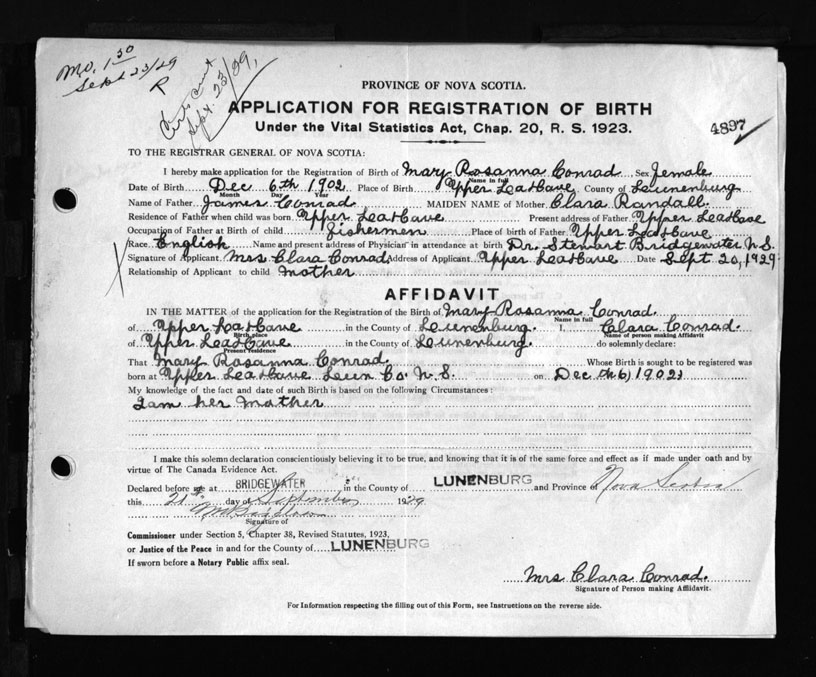 Mo. 1 50
Sept 23/29
R
Sept. 23/29,
PROVINCE OF NOVA SCOTIA.
APPLICATION FOR REGISTRATION OF BIRTH
Under the Vital Statistics Act, Chap. 20, R. S. 1923.
4897
TO THE REGISTRAR GENERAL OF NOVA SCOTIA:
I hereby make application for the Registration of Birth of Mary Rosanna Conrad Sex Female
Name in full
Date of Birth Dec 6th 1902 Place of Birth Upper LeaHave County of Leunenburg
Month Day Year
Name of Father James Conrad MAIDEN NAME of Mother Clara Randall.
Residence of Father when child was born Upper LeaHave Present address of Father Upper LeaHave
Occupation of Father at Birth of child fishermen Place of birth of Father Upper LeaHave
Race English Name and present address of Physician in attendance at birth Dr. Stewart Bridgewater N.S.
Signature of Applicant Mrs Clara Conrad Address of Applicant Upper LeaHave Date Sept 20, 1929.
Relationship of Applicant to child Mother
AFFIDAVIT
IN THE MATTER of the application for the Registration of the Birth of Mary Rosanna Conrad.
Name in full
of Upper LeaHave in the County of Leunenburg. I, Clara Conrad.
Birth place Name of person making Affidavit
of Upper LeaHave in the County of Leunenburg. do solemnly declare:
Present residence
That Mary Rosanna Conrad Whose Birth is sought to be registered was
born at Upper LeaHave Leun Co. N.S. on Dec 6, 1902
My knowledge of the fact and date of such Birth is based on the following Circumstances:
I am her Mother
I make this solemn declaration conscientiously believing it to be true, and knowing that it is of the same force and effect as if made under oath and by
virtue of The Canada Evidence Act.
Declared before me at BRIDGEWATER in the County of LUNENBURG and Province of Nova Scotia
this 21st day of September 1929
Signature of
Commissioner under Section 5, Chapter 38, Revised Statutes, 1923,
or Justice of the Peace in and for the County of LUNENBURG
If sworn before a Notary Public affix seal.
Mrs Clara Conrad.
Signature of Person making Affidavit.
For Information respecting the filling out of this Form, see Instructions on the reverse side.